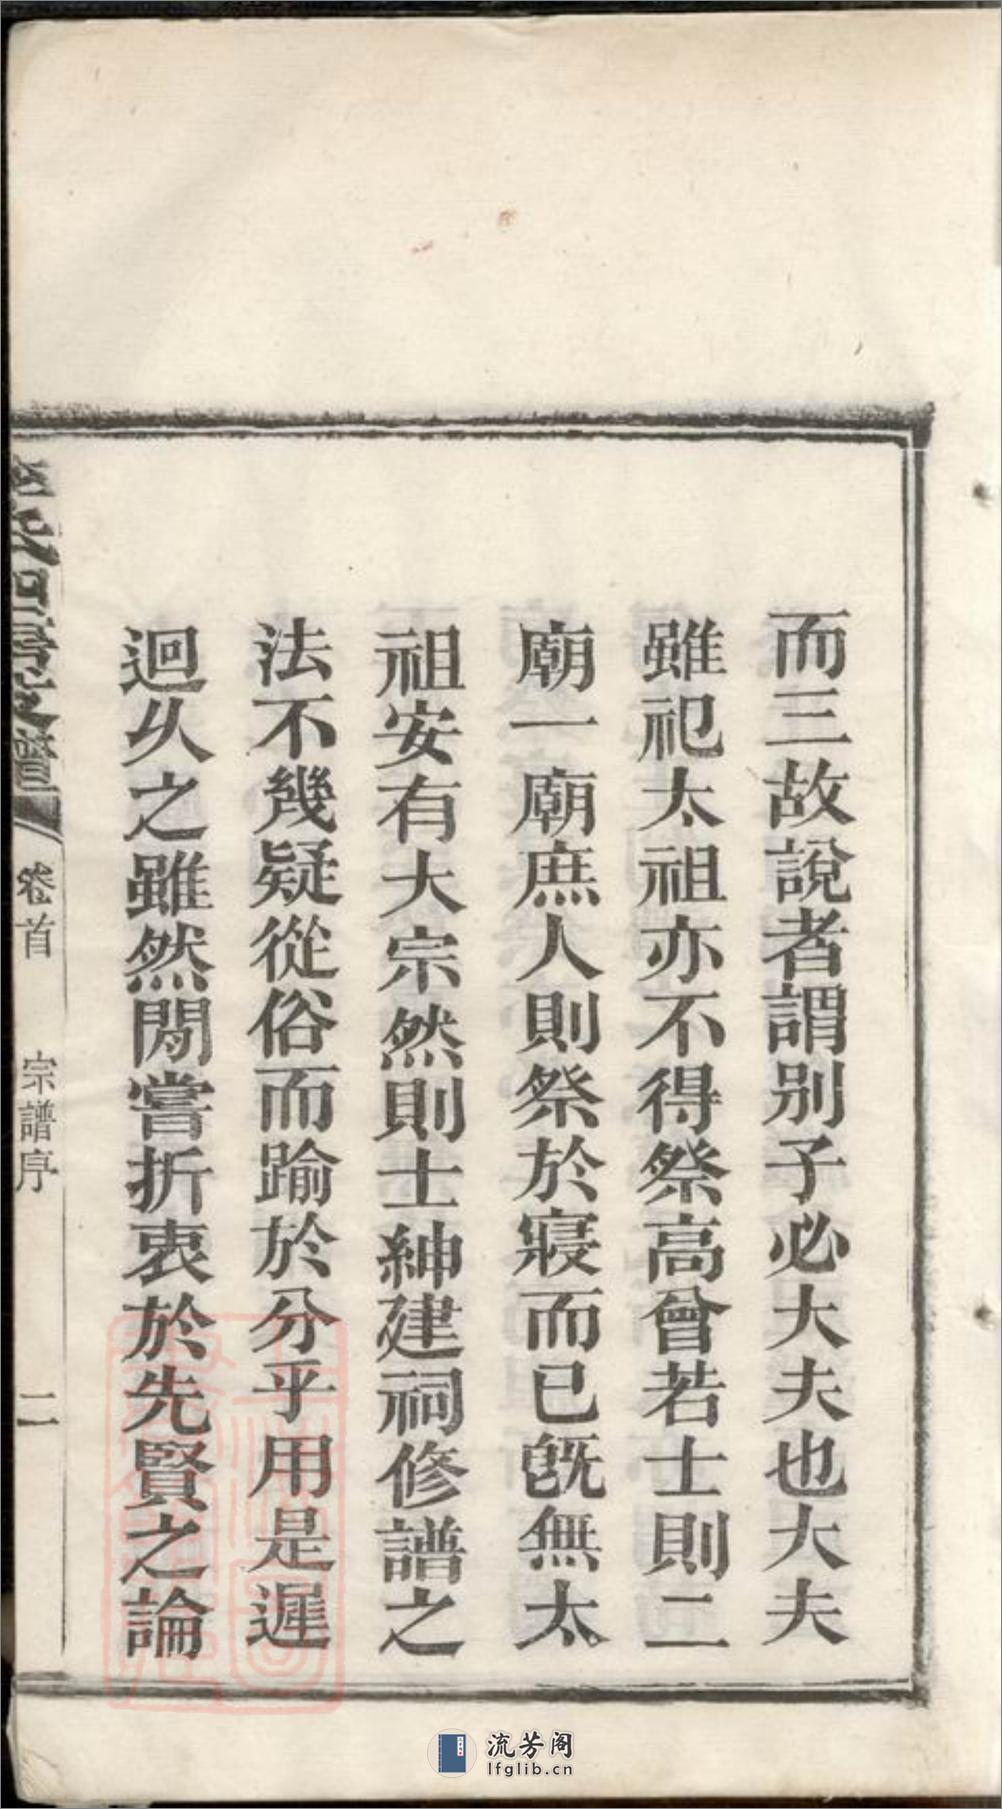 而三故說者謂别子必大夫也大夫
雖祀太祖亦不得祭高曾若士則二
廟一廟庶人則祭於寢而已旣無太
祖安有大宗然則士紳建祠修譜之
法不幾疑從俗而踰於分乎用是遲
迴久之雖然閒嘗折衷於先賢之論
氏四房支譜
卷首
宗譜序
二
流芳阁
lfglib.cn